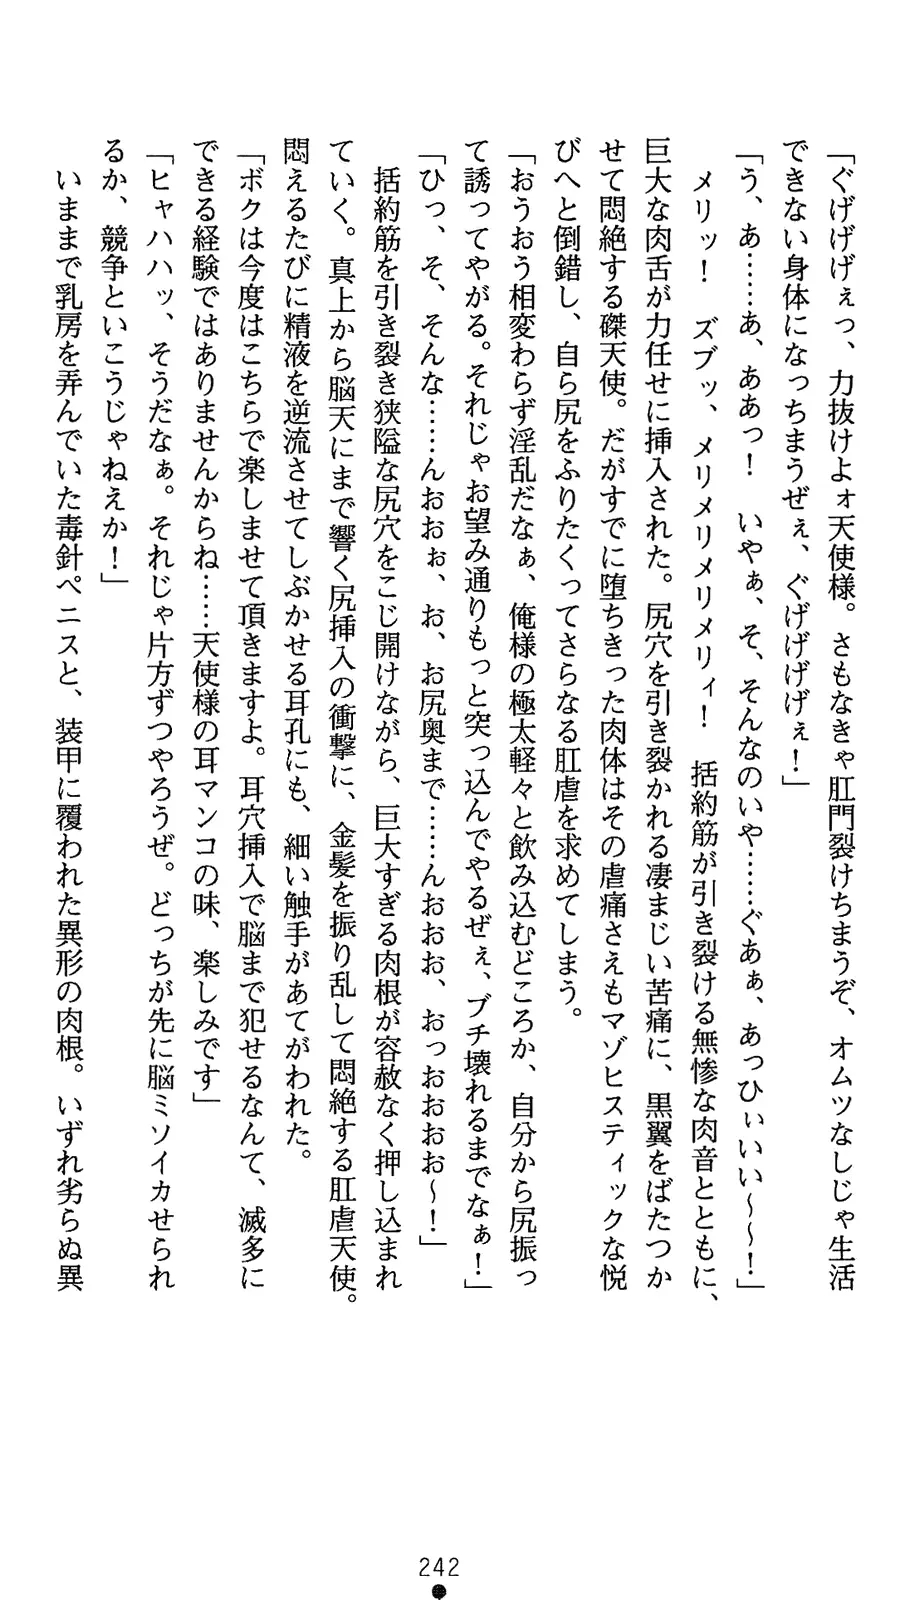 「ぐげげげぇっ、力抜けよォ天使様。さもなきゃ肛門裂けちまうぞ、オムツなしじゃ生活
できない身体になっちまうぜぇ、ぐげげげげぇ！」
「う、あ……あ、ああっ！　いやぁ、そ、そんなのいや……ぐあぁ、あっひぃいい～～！」
　メリッ！　ズブッ、メリメリメリメリィ！　括約筋が引き裂ける無惨な肉音とともに、
巨大な肉舌が力任せに挿入された。尻穴を引き裂かれる凄まじい苦痛に、黒翼をばたつか
せて悶絶する磔天使。だがすでに堕ちきった肉体はその虐痛さえもマゾヒスティックな悦
びへと倒錯し、自ら尻をふりたくってさらなる肛虐を求めてしまう。
「おうおう相変わらず淫乱だなぁ、俺様の極太軽々と飲み込むどころか、自分から尻振っ
て誘ってやがる。それじゃお望み通りもっと突っ込んでやるぜぇ、ブチ壊れるまでなぁ！」
「ひっ、そ、そんな……んおおぉ、お、お尻奥まで……んおおお、おっおおおお～！」
　括約筋を引き裂き狭隘な尻穴をこじ開けながら、巨大すぎる肉根が容赦なく押し込まれ
ていく。真上から脳天にまで響く尻挿入の衝撃に、金髪を振り乱して悶絶する肛虐天使。
悶えるたびに精液を逆流させてしぶかせる耳孔にも、細い触手があてがわれた。
「ボクは今度はこちらで楽しませて頂きますよ。耳穴挿入で脳まで犯せるなんて、滅多に
できる経験ではありませんからね……天使様の耳マンコの味、楽しみです」
「ヒャハハッ、そうだなぁ。それじゃ片方ずつやろうぜ。どっちが先に脳ミソイカせられ
るか、競争といこうじゃねえか！」
　いままで乳房を弄んでいた毒針ペニスと、装甲に覆われた異形の肉根。いずれ劣らぬ異
242